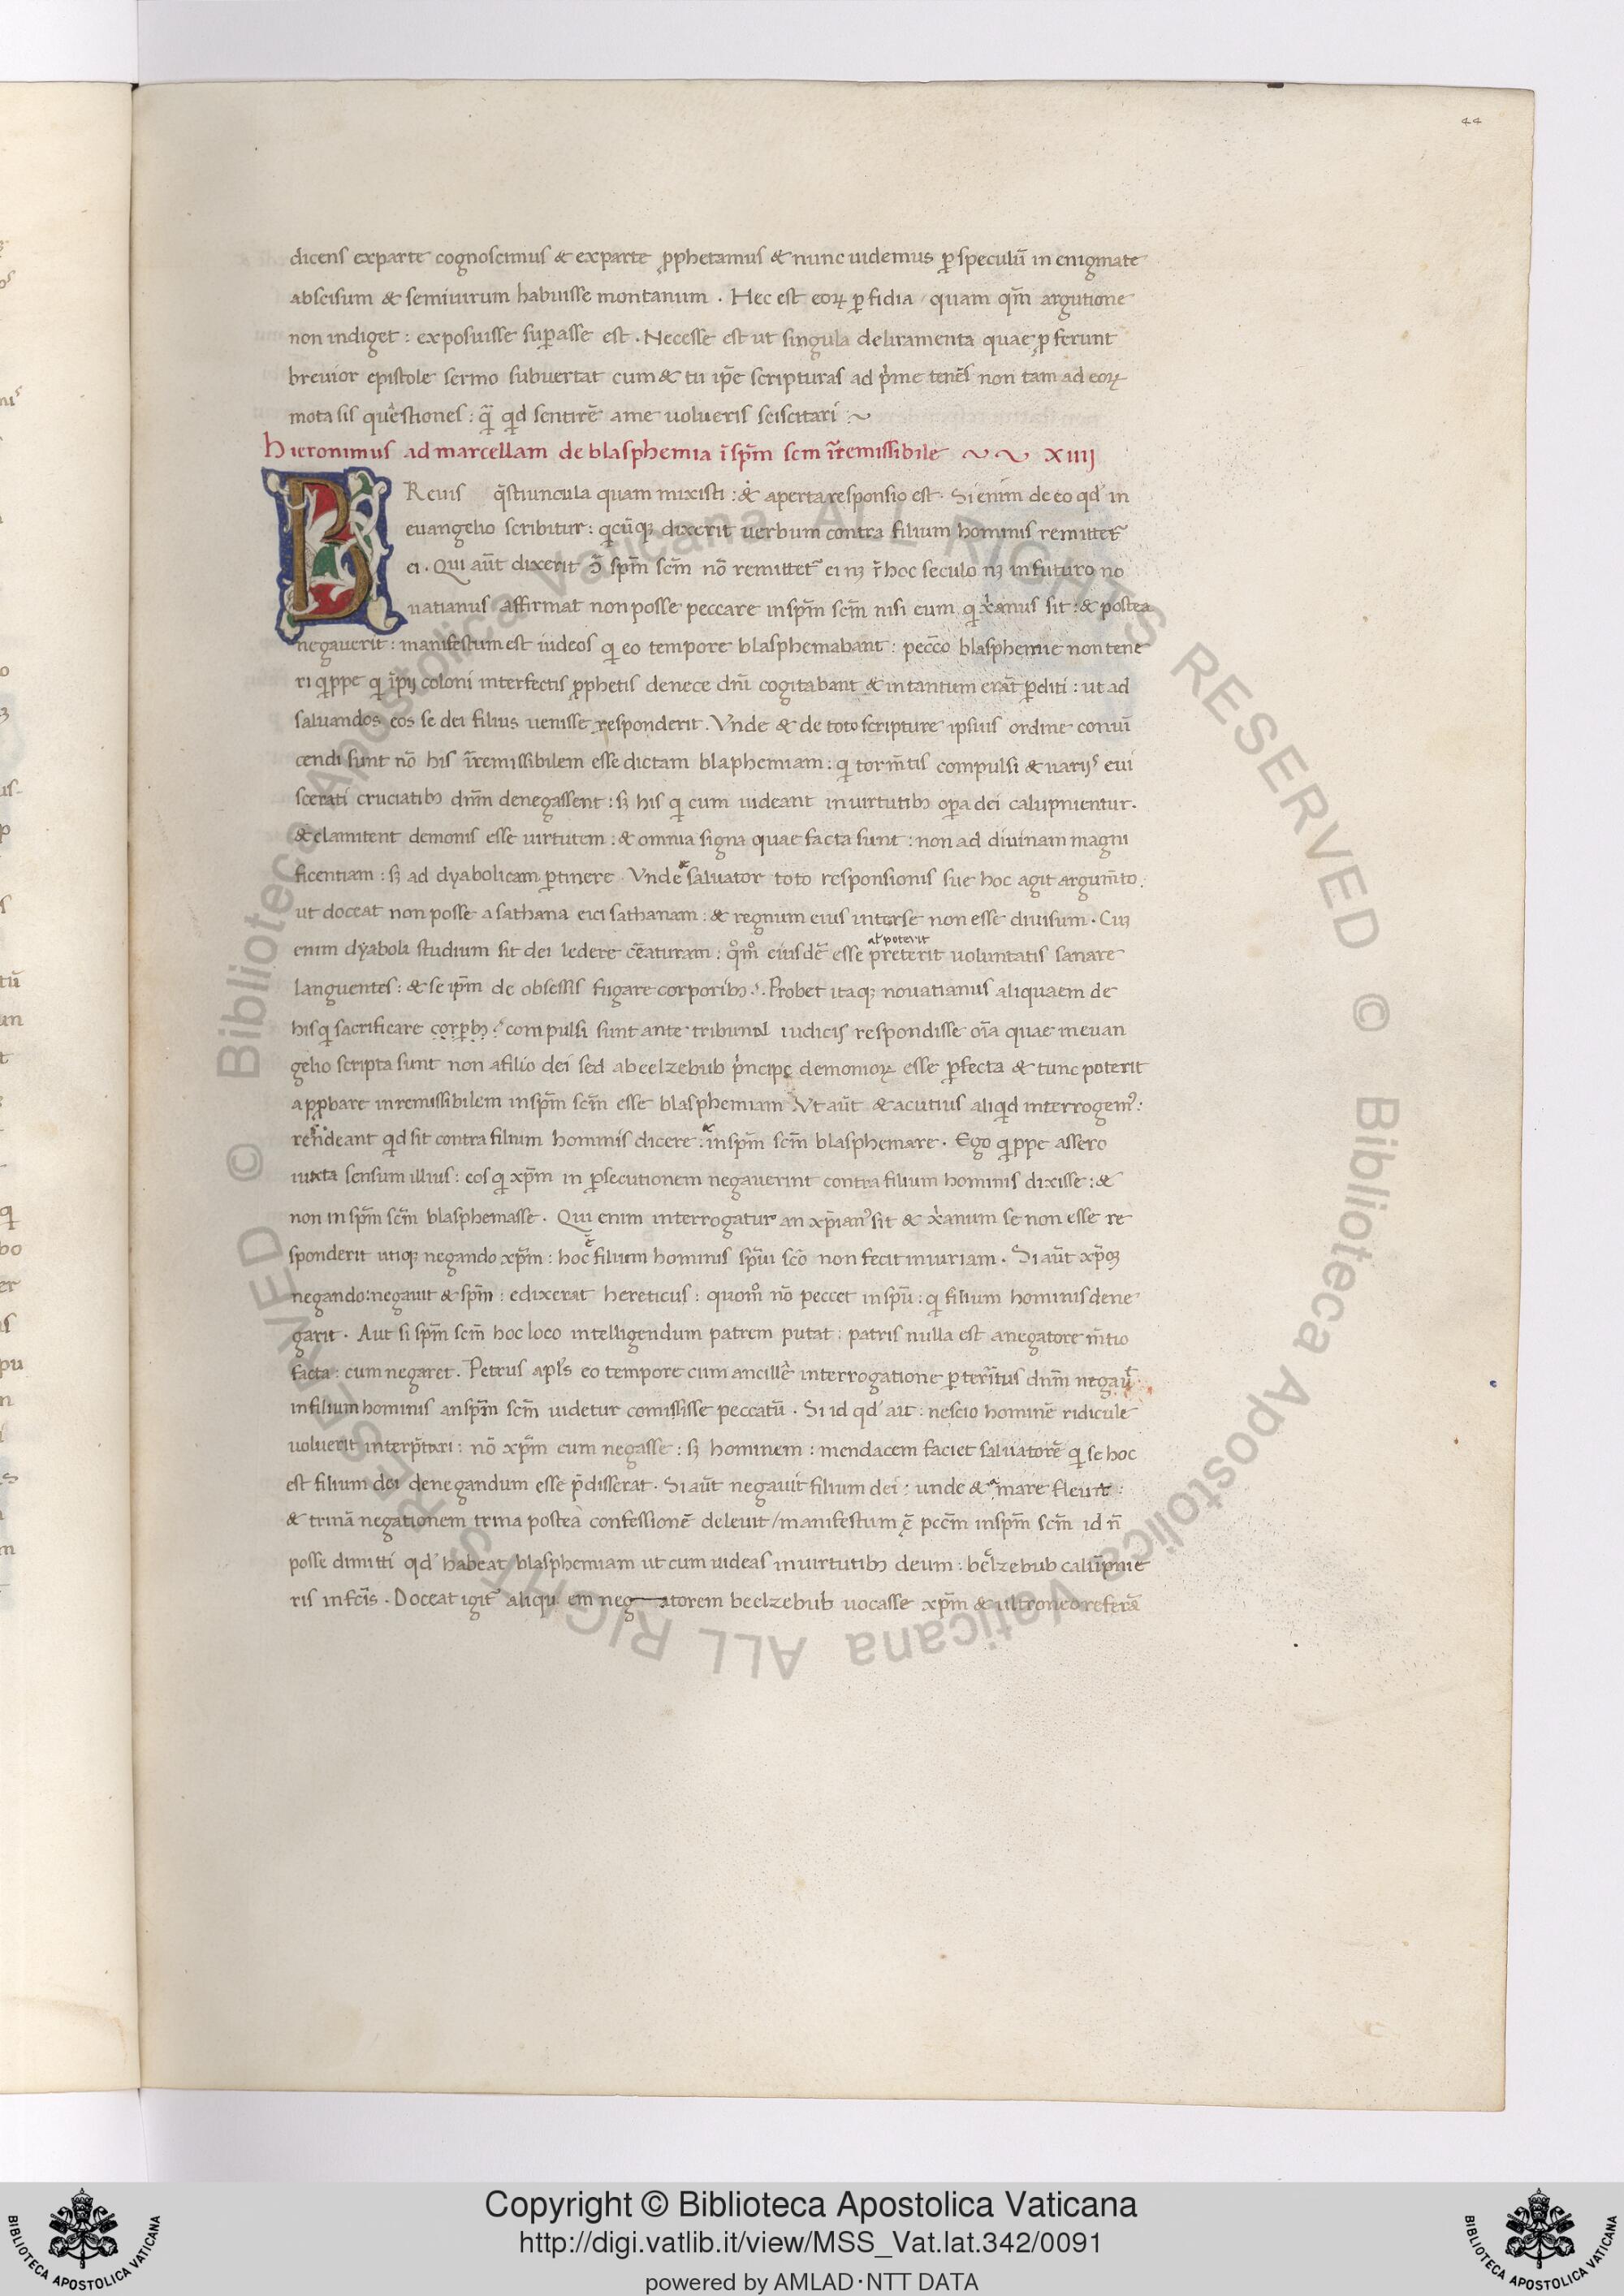 44
dicens exparte cognoscimus & exparte ꝓphetamus & nunc uidemus ꝑ speculū in enigmate
abscisum & semiuirum habuisse montanum . Hec est eoꝝ ꝑfidia / quam qm̄ argutione
non indiget : exposuisse suꝑasse est . Necesse est ut singula deliramenta quae ꝓferunt
breuior epistole sermo subuertat cum & tu ip̄e scripturas ad p̍me tenēs non tam ad eoꝝ
mota sis quęstiones : q̄ qd sentirē ame uolueris sciscitari :~
Hieronimus ad marcellam de blasphemia ī sp̄m scm īremissibile ~ ~ XIIIJ
BReuis q̄stiuncula quam mixisti : & aperta responsio est . Si enim de eo qd' in
euangelio scribitur : qcūqꝫ dixerit uerbum contra filium hominis remittet᷑
ei . Qui aūt dixerit ɔ̄ sp̄m scm̄ nō remittet᷑ ei nꝫ ī hoc seculo nꝫ in futuro no
uatianus affirmat non posse peccare in sp̄m scm̄ nisi eum q xp̄ianus sit : & postea
negauerit : manifestum est iudeos q eo tempore blasphemabant : pecc̄o blasphemie non tene
ri qppe q īpij coloni interfectis ꝓphetis denece dnī cogitabant & in tantum erāt ꝑditi : ut ad
saluandos eos se dei filius uenisse responderit . Vnde & de toto scripture ipsius ordine conuī
cendi sunt nō his īremissibilem esse dictam blaphemiam : q torm̄tis compulsi & uarijs eui
scerati cruciatibꝫ dnm̄ denegassent : sꝫ his q cum uideant in uirtutibꝫ oꝑa dei calupnientur .
& clamitent demonis esse uirtutem : & omnia signa quae facta sunt : non ad diuinam magni
ficentiam : sꝫ ad dyabolicam ꝑtinere . Vnde & saluator toto responsionis sue hoc agit argum̄to .
ut doceat non posse a sathana eici sathanam : & regnum eius inter se non esse diuisum . Cuꝫ
al' poterit
enim dyaboli studium sit dei ledere c̄eaturam : qͦmͦ eiusdē esse preterit uoluntatis sanare
languentes : & se ip̄m de obsessis fugare corporibꝫ . Probet itaqꝫ nouatianus aliquaem de
his q sacrificare corꝑbꝫ compulsi sunt ante tribunal iudicis respondisse oīa quae in euan
gelio scripta sunt non afilio dei sed abeelzebub p̍ncipe demonioꝝ esse ꝑfecta & tunc poterit
apꝓbare inremissibilem in sp̄m scm̄ esse blasphemiam . Vt aūt & acutius aliqd interrogemꝰ :
rendeant qd sit contra filium hominis dicere : & in sp̄m scm̄ blasphemare . Ego qppe assero
iuxta sensum illius : eos q xp̄m in ꝑsecutionem negauerint contra filium hominis dixisse : &
non in sp̄m scm̄ blasphemasse . Qui enim interrogatur an xp̄ianꝰ sit & xp̄ianum se non esse re
sponderit utiqꝫ negando xp̄m : hoc ē filium hominis sp̄ui scō non fecit iniuriam . Si aūt xp̄m
negando : negauit & sp̄m : edixerat hereticus : quomͦ nō peccet in sp̄u : q filium hominis dene
garit . Aut si sp̄m scm̄ hoc loco intelligendum patrem putat : patris nulla est anegatore m̄tio
facta : cum negaret . Petrus apl's eo tempore cum ancillę interrogatione ꝑterritus dnm̄ negau̅
infilium hominis an sp̄m scm̄ uidetur comississe peccatū . Si id qd' ait : nescio hominē ridicule
uoluerit interp̄tari : nō xp̄m eum negasse : sꝫ hominem : mendacem faciet saluatorē q se hoc
est filium dei denegandum esse p̄disserat . Si aūt negauit filium dei : unde & amare fleuit :
& trinā negationem trina postea confessionē deleuit / manifestum ē pccm̄ in sp̄m scm̄ id n̄
posse dimitti qd' habeat blasphemiam ut cum uideas in uirtutibꝫ deum : beelzebub calūpnie
ris in fcīs . Doceat igit᷑ aliquem negatorem beelzebub uocasse xp̄m & ultroneo referā
© Biblioteca Apostolica Vaticana ALL RIGHTS RESERVED © Biblioteca Apostolica Vaticana ALL RIGHTS RESERVED
BIBLIOTECA APOSTOLICA VATICANA
Copyright © Biblioteca Apostolica Vaticana
http://digi.vatlib.it/view/MSS_Vat.lat.342/0091
powered by AMLAD·NTT DATA
BIBLIOTECA APOSTOLICA VATICANA